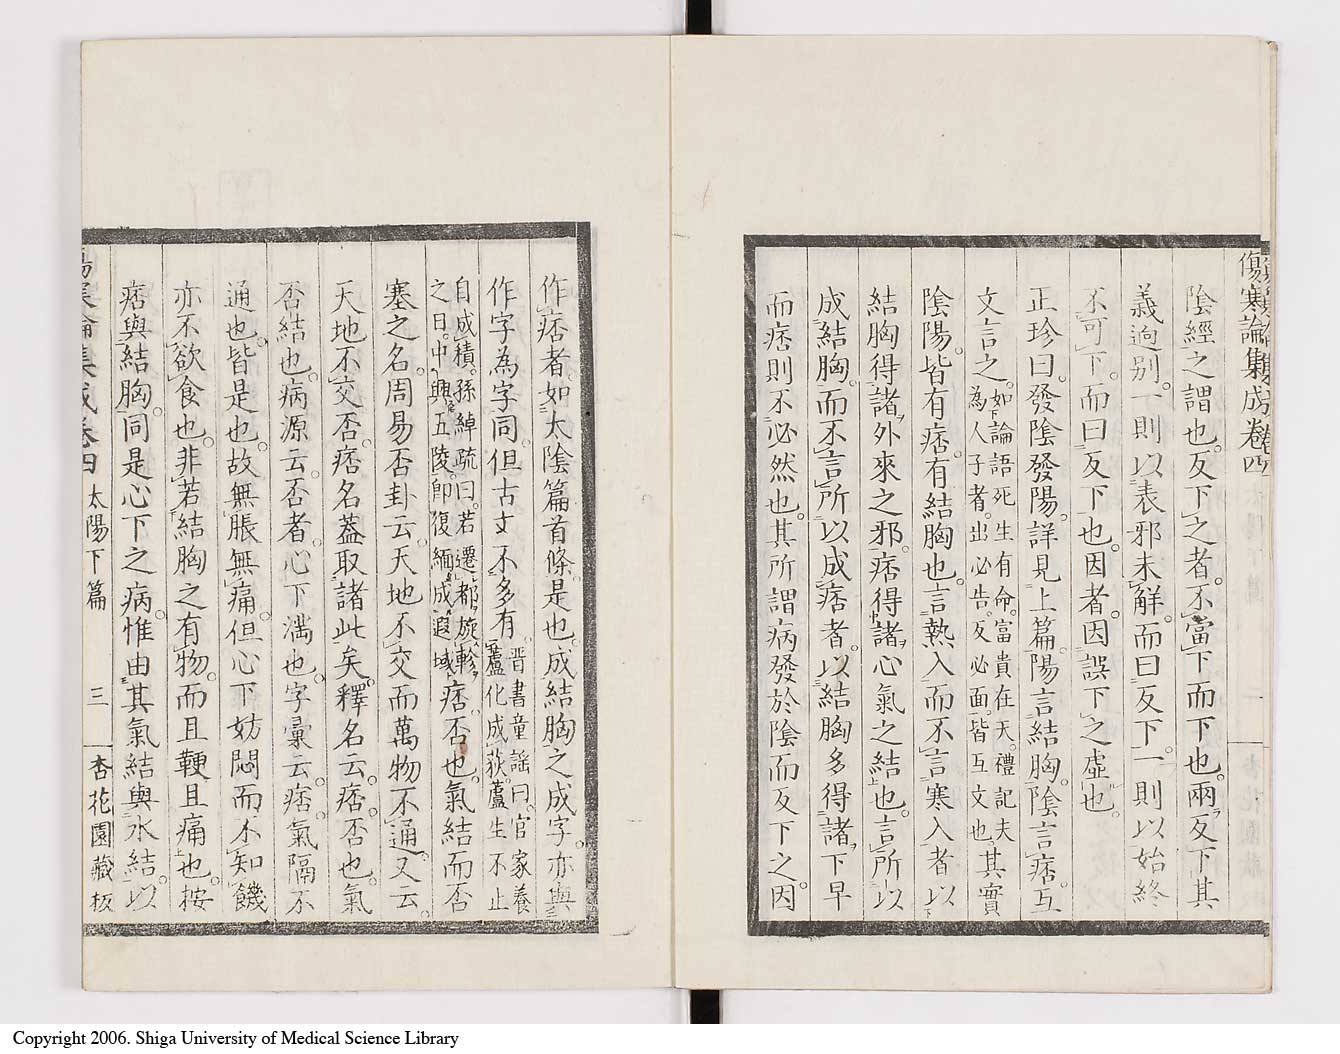 傷寒論集成卷四
陰經之謂也。反下之者。不當下而下也。兩反下其
義逈别。一則以表邪未解。而曰反下。一則以始終
不可下。而曰反下也。因者。因誤下之虛也。
正珍曰。發陰發陽。詳見上篇。陽言結胸。陰言痞。互
文言之。如論語死生有命。富貴在天。禮記夫為人子者。出必告。反必面。皆互文也。其實
陰陽。皆有痞。有結胸也。言熱入而不言寒入者。以
結胸得諸外來之邪。痞得諸心氣之結也。言所以
成結胸。而不言所以成痞者。以結胸多得諸下早
而痞則不必然也。其所謂病發於陰而反下之。因
作痞者。如太陰篇首條。是也。成結胸之成字。亦與
作字為字同。但古文不多有。晋書童謡曰。官家養蘆化成荻。蘆生不止
自成積。孫綽疏曰。若遷都旋軫之日。中興五陵。即復緬成遐域。痞否也。氣結而否
塞之名。周易否卦云。天地不交而萬物不通。又云。
天地不交否。痞名蓋取諸此矣。釋名云。痞。否也。氣
否結也。病源云。否者。心下満也。字彙云。痞。氣隔不
通也。皆是也。故無脹無痛。但心下妨悶而不知饑
亦不欲食也。非若結胸之有物。而且鞕且痛也。按
痞與結胸。同是心下之病。惟由其氣結與水結。以
傷寒論集成卷四 太陽下篇 三 杏花園藏板
Copyright 2006. Shiga University of Medical Science Library